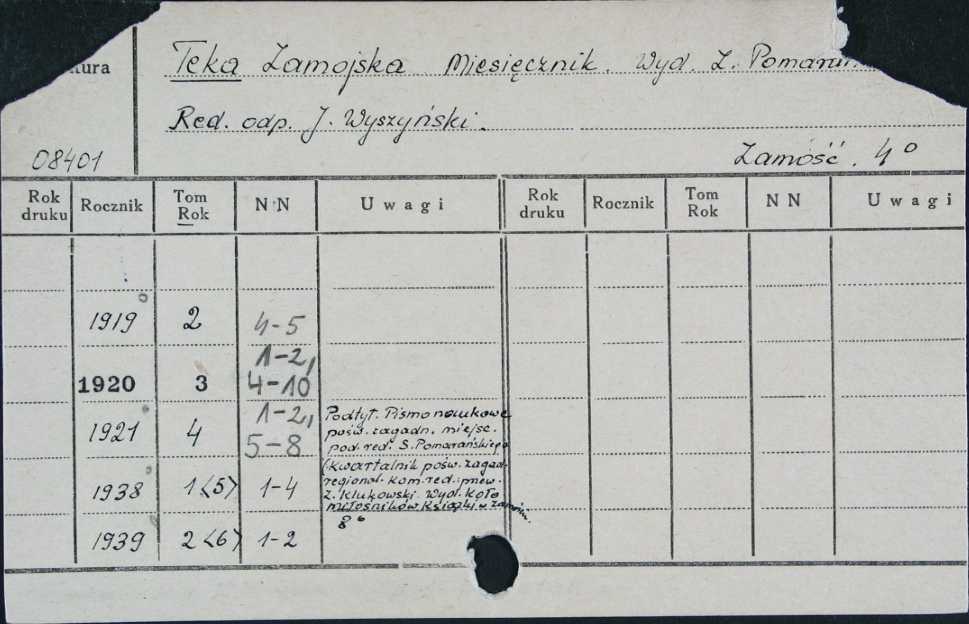 Teka Zamojska Miesięcznik. Wyd. Z.
Red. odp. J. Wyszyński.
08401
Zamość. 4°
Rok druku Rocznik Tom Rok N N U w a g i Rok druku Rocznik Tom Rok N N U w a g i
1919 2 4-5
1920 3 1-2, 4-10
1921 4 1-2, 5-8 Podtyt. Pismo naukowe
pośw. zagadn. miejsc.
pod red. S. Pomarańskiego
(Kwartalnik pośw. zagad.
1938 1<5> 1-4 regional. Kom. red.: przew.
Z. Klukowski. Wyd. Koło
Miłośników Książki w Zamośc.
8°
1939 2<6> 1-2